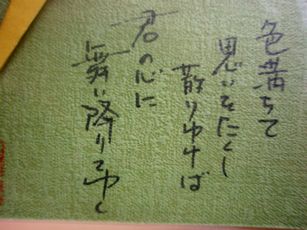 色満ちて
思いをたくし
散りゆけば
君の心に
舞い降りてゆく